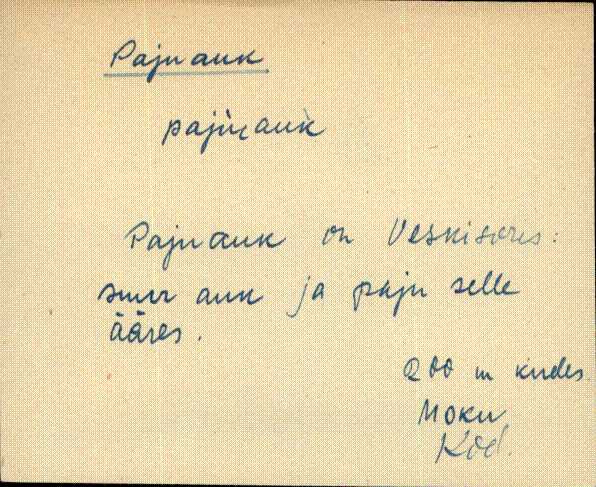 Pajuauk
pajùauk
Pajuauk on Veskisores:
suur auk ja paju selle
ääres.
200 m kirdes
Moku
Kod.